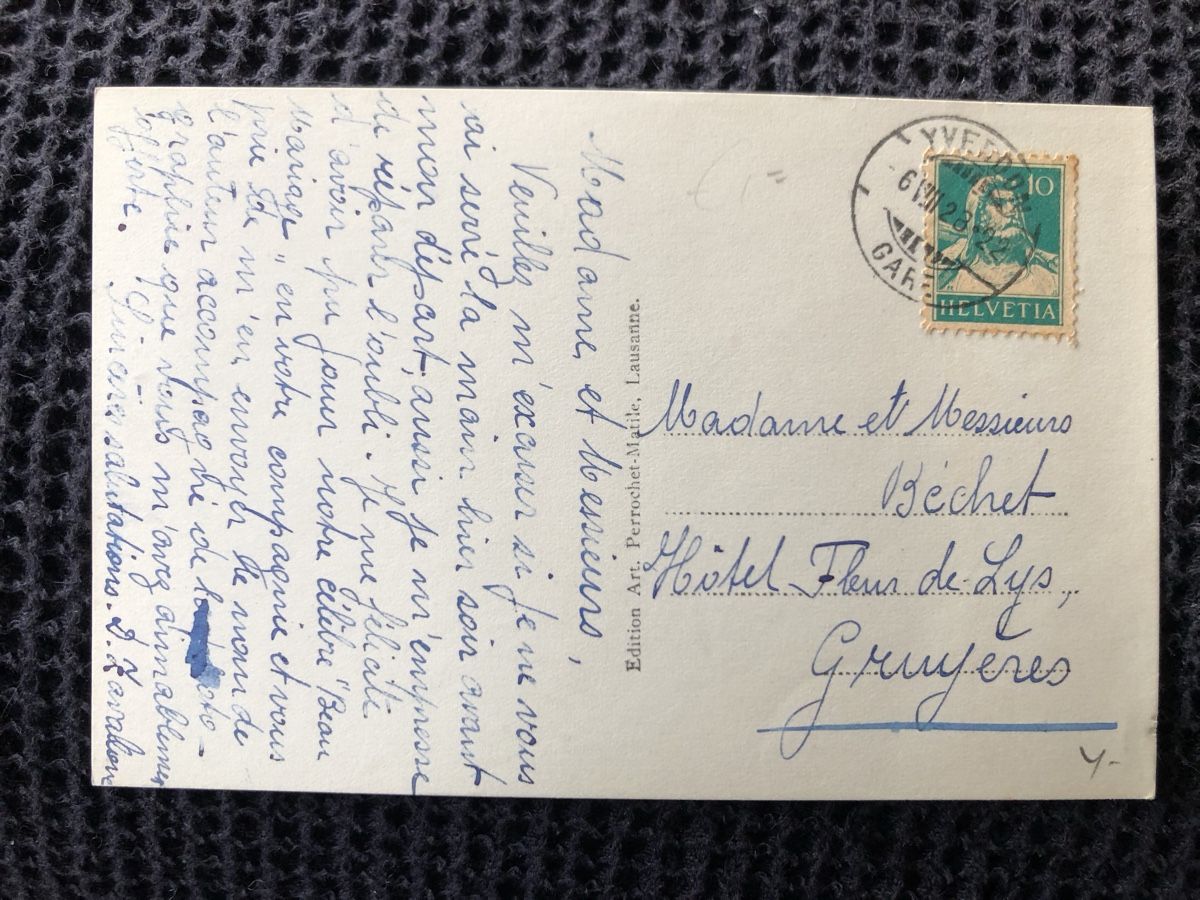 Madame et Messieurs,
Veuillez m'excuser si je ne vous
ai serré la main hier soir avant
mon départ, aussi je m'empresse
de réparer l'oubli. Je me félicite
d'avoir pu jouer notre célèbre "Beau
mariage" en votre compagnie et vous
prie de m'en envoyer le nom de
l'auteur accompagné de la photo-
graphie que vous m'avez aimablement
offerte. Sincères salutations. D.
Edition Art. Perrochet-Matile, Lausanne.
YVERDON
6 VII 28-22
GARE
10
HELVETIA
Madame et Messieurs
Béchet
Hôtel Fleur de Lys,
Gruyères
4-